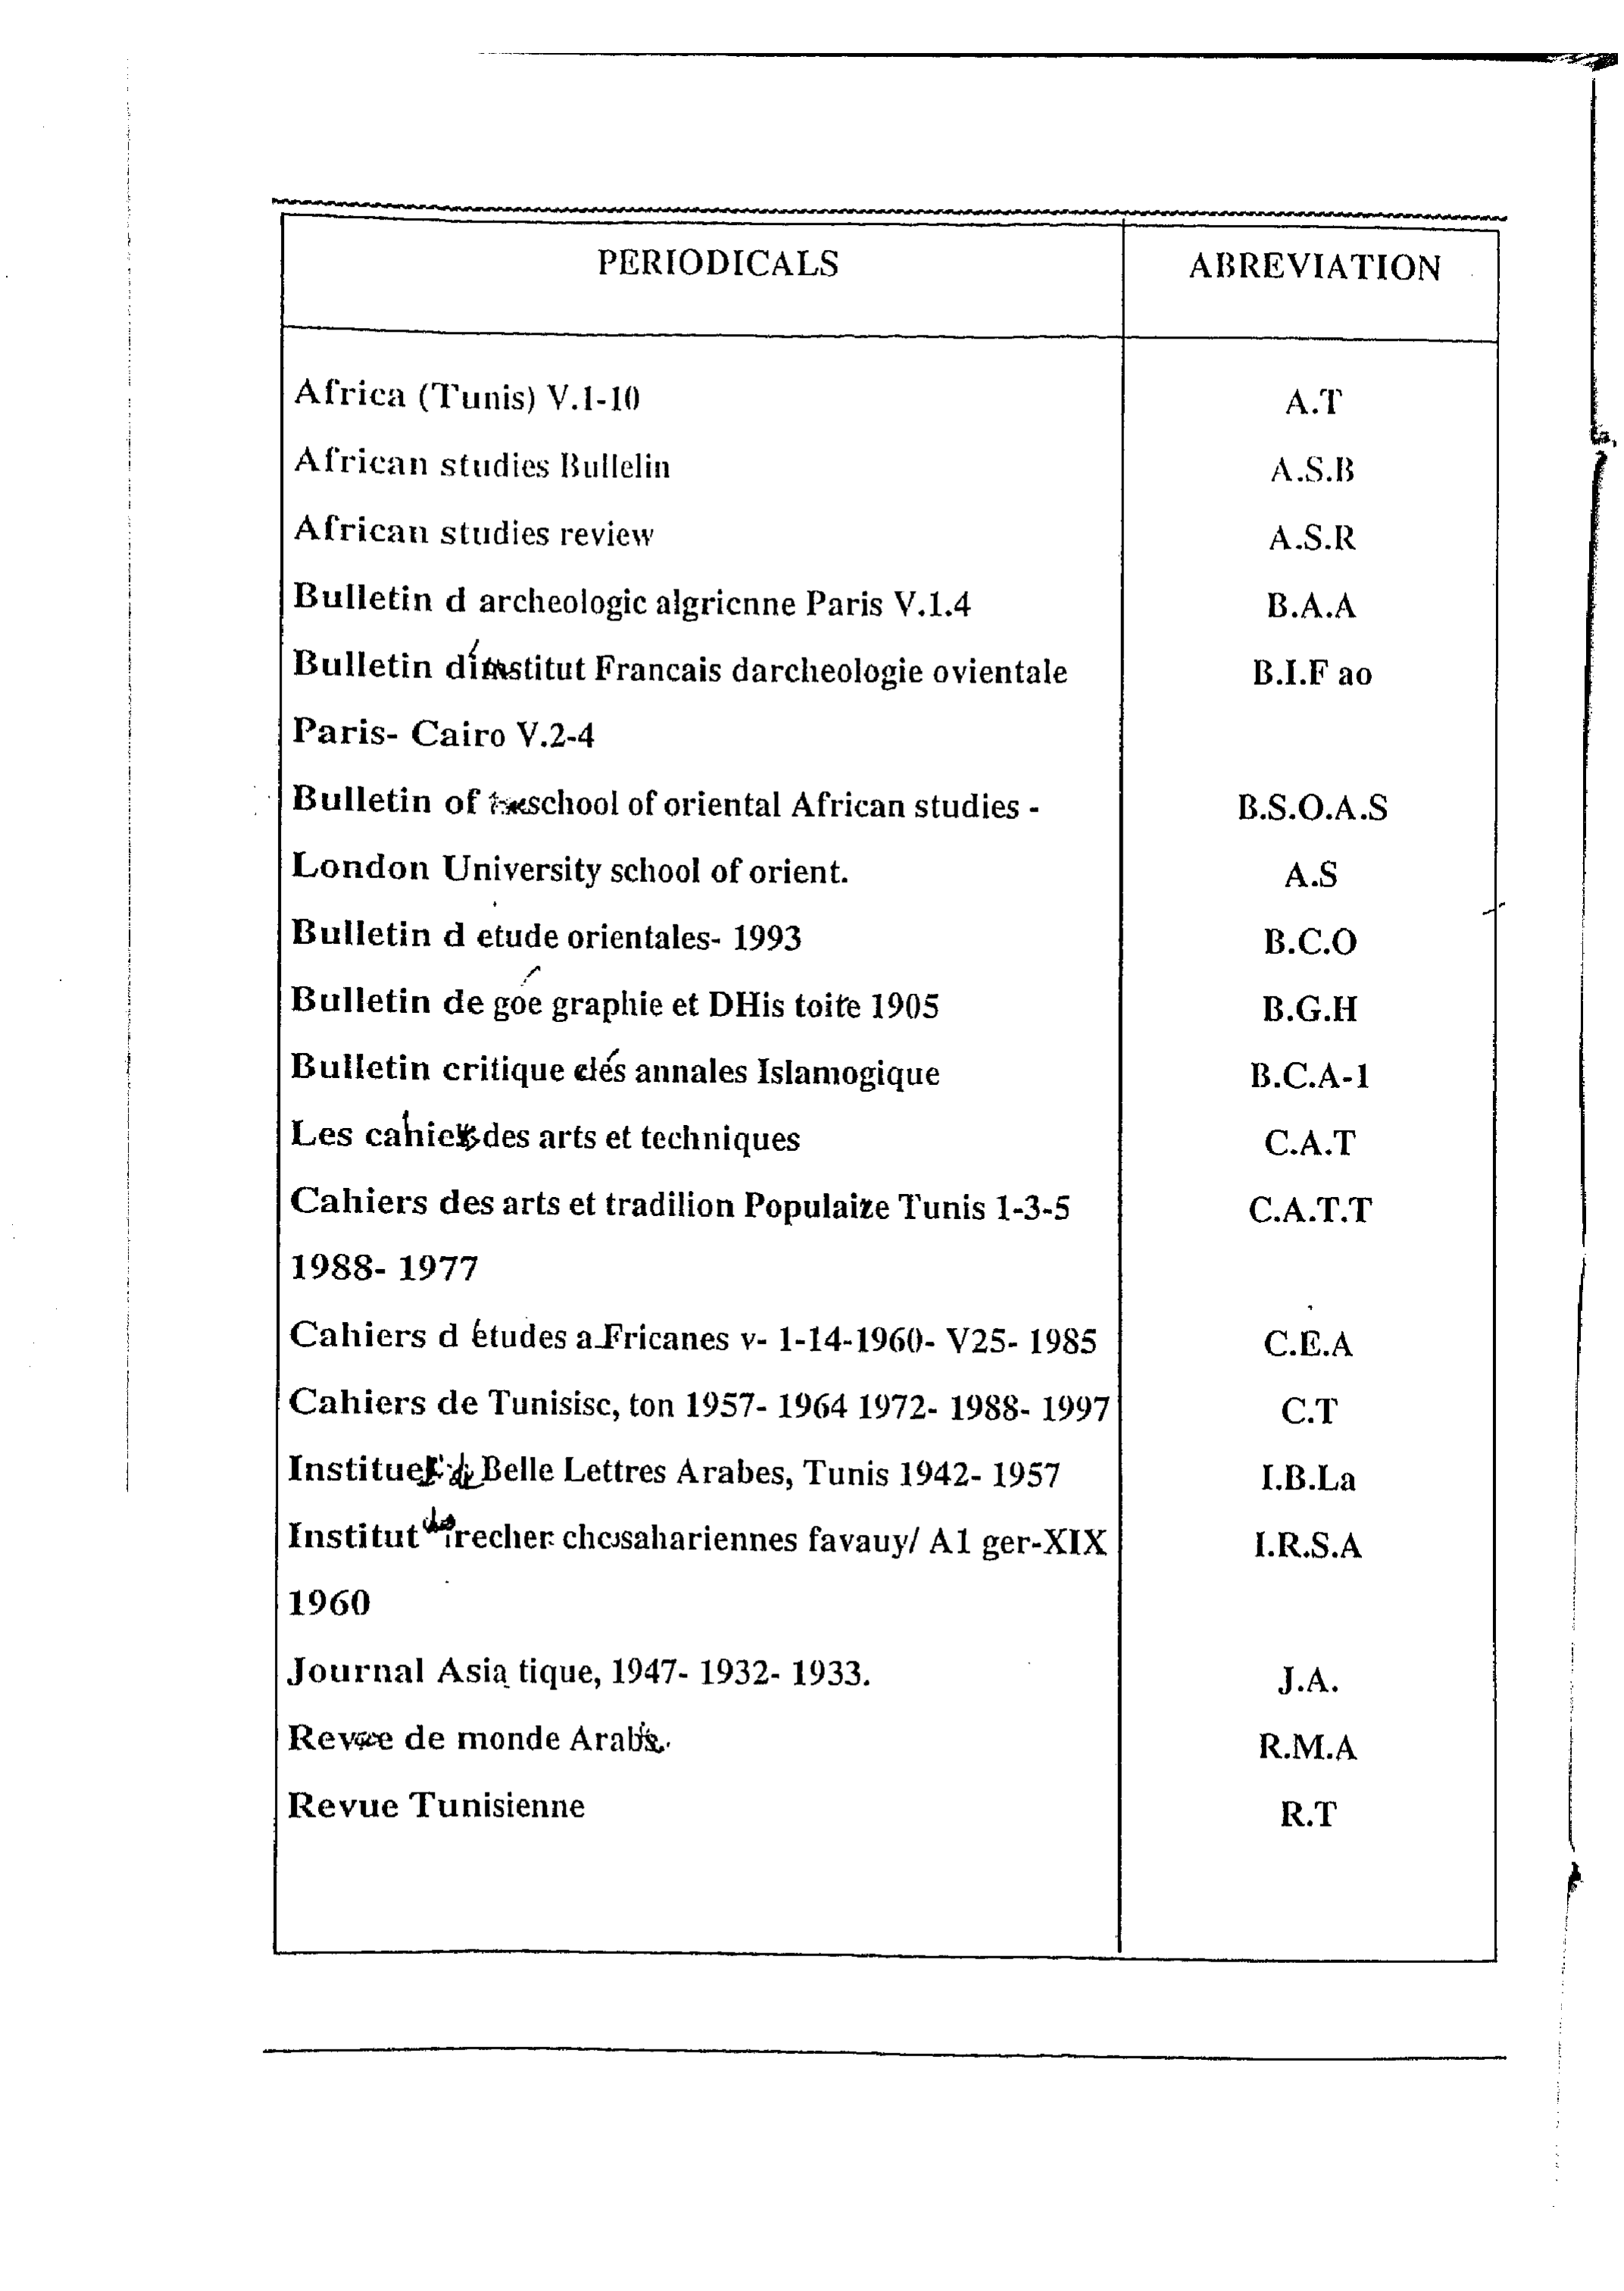 PERIODICALS ABREVIATION
Africa (Tunis) V.1-10 A.T
African studies Bullelin A.S.B
African studies review A.S.R
Bulletin d archeologic algricnne Paris V.1.4 B.A.A
Bulletin d'institut Francais darcheologie ovientale B.I.F ao
Paris- Cairo V.2-4
Bulletin of the school of oriental African studies - B.S.O.A.S
London University school of orient. A.S
Bulletin d etude orientales- 1993 B.C.O
Bulletin de goé graphie et DHis toite 1905 B.G.H
Bulletin critique dés annales Islamogique B.C.A-1
Les cahiers des arts et techniques C.A.T
Cahiers des arts et tradilion Populaize Tunis 1-3-5 C.A.T.T
1988- 1977
Cahiers d études a Fricanes v- 1-14-1960- V25- 1985 C.E.A
Cahiers de Tunisisc, ton 1957- 1964 1972- 1988- 1997 C.T
Institue de Belle Lettres Arabes, Tunis 1942- 1957 I.B.La
Institut recher chesahariennes favauy/ A1 ger-XIX I.R.S.A
1960
Journal Asia tique, 1947- 1932- 1933. J.A.
Revue de monde Arab R.M.A
Revue Tunisienne R.T